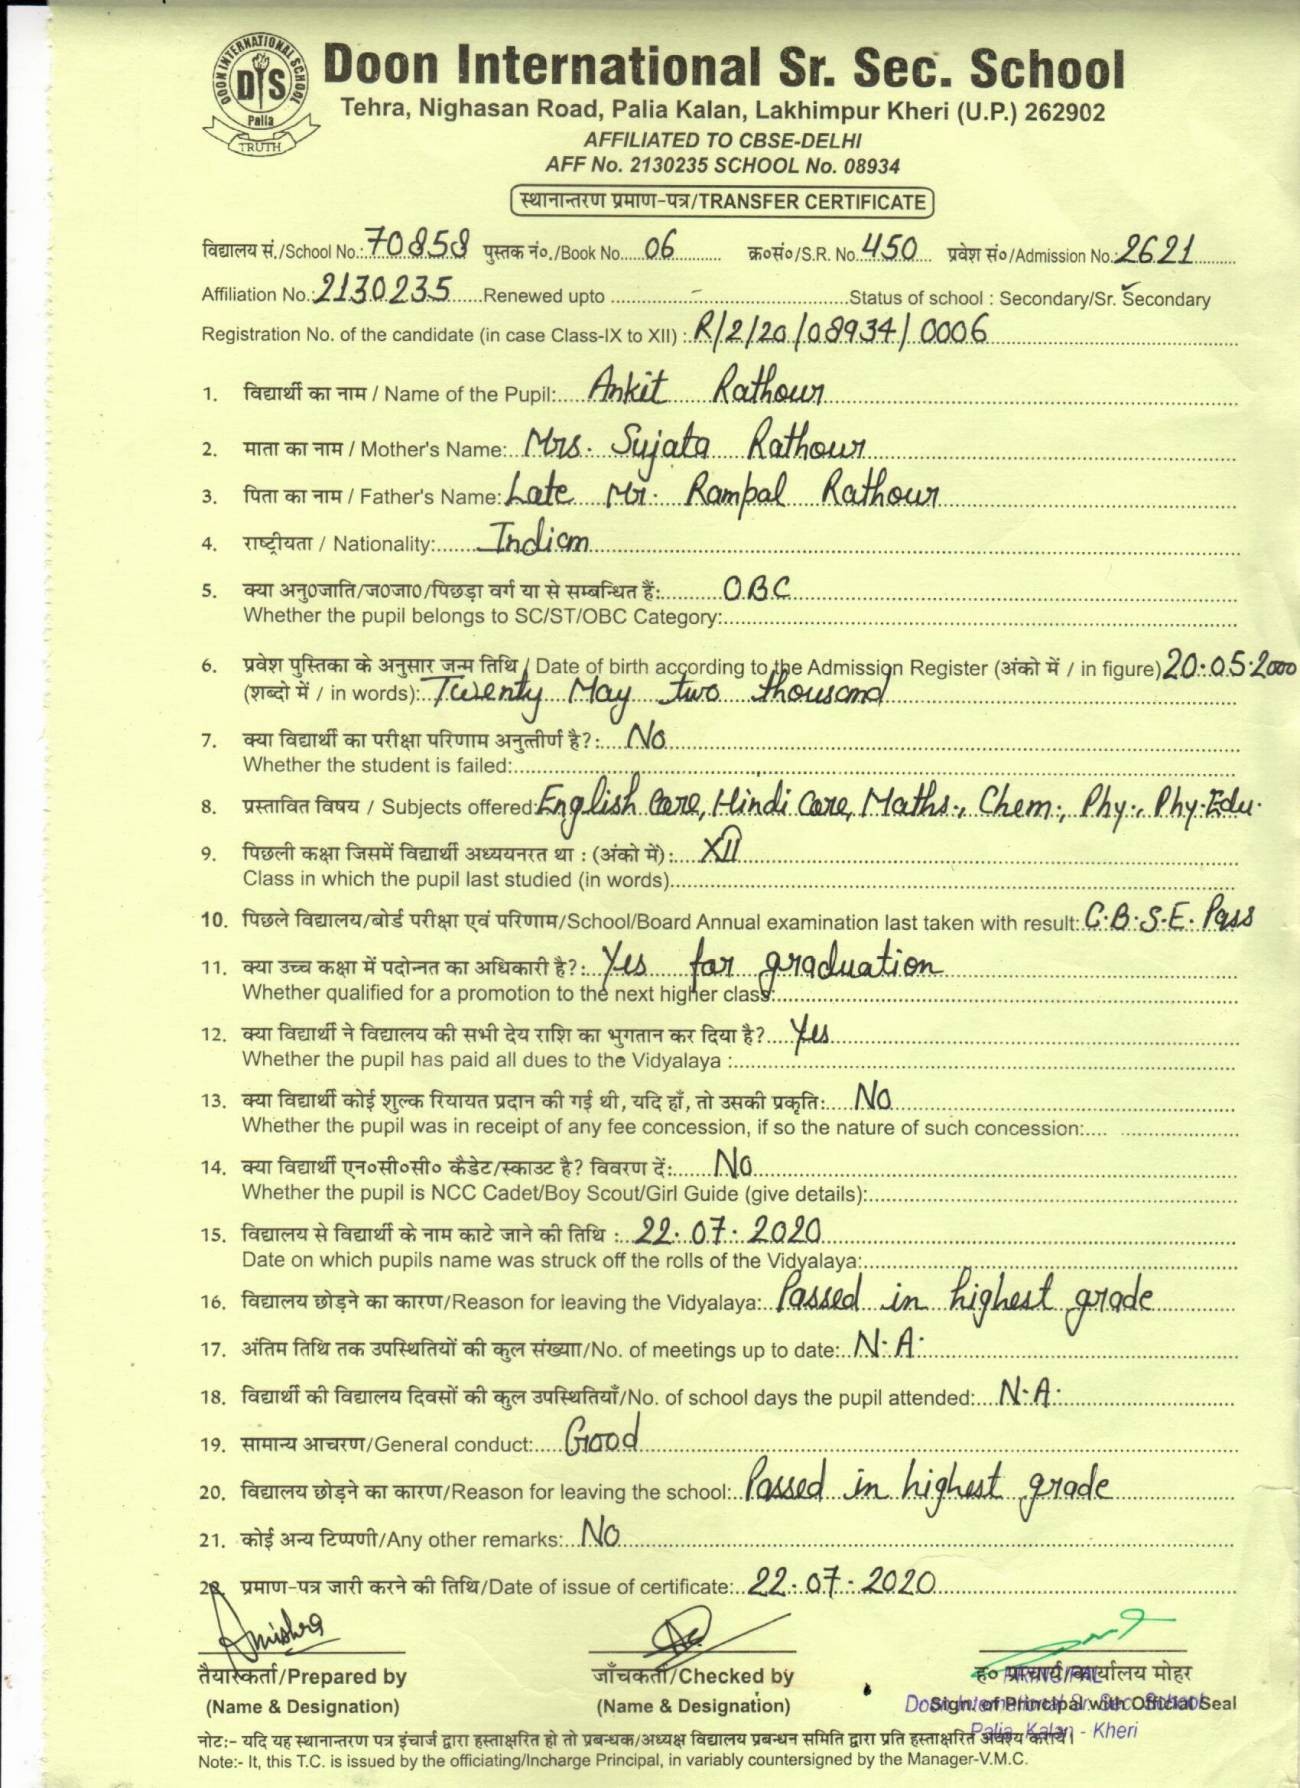 DOON INTERNATIONAL SCHOOL
DIS
Palia
TRUTH
Doon International Sr. Sec. School
Tehra, Nighasan Road, Palia Kalan, Lakhimpur Kheri (U.P.) 262902
AFFILIATED TO CBSE-DELHI
AFF No. 2130235 SCHOOL No. 08934
स्थानान्तरण प्रमाण-पत्र/TRANSFER CERTIFICATE
विद्यालय सं./School No.: 70858 पुस्तक नं०./Book No. 06 क्र०सं०/S.R. No. 450 प्रवेश सं०/Admission No.: 2621
Affiliation No.: 2130235 Renewed upto - Status of school : Secondary/Sr. Secondary
Registration No. of the candidate (in case Class-IX to XII) : R/2/20/08934/0006
1. विद्यार्थी का नाम / Name of the Pupil: Ankit Rathour
2. माता का नाम / Mother's Name: Mrs. Sujata Rathour
3. पिता का नाम / Father's Name: Late Mr. Rampal Rathour
4. राष्ट्रीयता / Nationality: Indian
5. क्या अनु0जाति/ज0जा0/पिछड़ा वर्ग या से सम्बन्धित हैं: OBC
Whether the pupil belongs to SC/ST/OBC Category:
6. प्रवेश पुस्तिका के अनुसार जन्म तिथि / Date of birth according to the Admission Register (अंको में / in figure) 20.05.2000
(शब्दो में / in words): Twenty May two thousand
7. क्या विद्यार्थी का परीक्षा परिणाम अनुत्तीर्ण है?: No
Whether the student is failed:
8. प्रस्तावित विषय / Subjects offered: English Core, Hindi Core, Maths., Chem., Phy., Phy.Edu.
9. पिछली कक्षा जिसमें विद्यार्थी अध्ययनरत था : (अंको में): XII
Class in which the pupil last studied (in words)
10. पिछले विद्यालय/बोर्ड परीक्षा एवं परिणाम/School/Board Annual examination last taken with result: C.B.S.E. Pass
11. क्या उच्च कक्षा में पदोन्नत का अधिकारी है?: Yes for graduation
Whether qualified for a promotion to the next higher class:
12. क्या विद्यार्थी ने विद्यालय की सभी देय राशि का भुगतान कर दिया है? Yes
Whether the pupil has paid all dues to the Vidyalaya :
13. क्या विद्यार्थी कोई शुल्क रियायत प्रदान की गई थी, यदि हाँ, तो उसकी प्रकृति: No
Whether the pupil was in receipt of any fee concession, if so the nature of such concession:
14. क्या विद्यार्थी एन०सी०सी० कैडेट/स्काउट है? विवरण दें: No
Whether the pupil is NCC Cadet/Boy Scout/Girl Guide (give details):
15. विद्यालय से विद्यार्थी के नाम काटे जाने की तिथि : 22.07.2020
Date on which pupils name was struck off the rolls of the Vidyalaya:
16. विद्यालय छोड़ने का कारण/Reason for leaving the Vidyalaya: Passed in highest grade
17. अंतिम तिथि तक उपस्थितियों की कुल संख्याा/No. of meetings up to date: N.A.
18. विद्यार्थी की विद्यालय दिवसों की कुल उपस्थितियाँ/No. of school days the pupil attended: N.A.
19. सामान्य आचरण/General conduct: Good
20. विद्यालय छोड़ने का कारण/Reason for leaving the school: Passed in highest grade
21. कोई अन्य टिप्पणी/Any other remarks: No
22. प्रमाण-पत्र जारी करने की तिथि/Date of issue of certificate: 22.07.2020
Amishra
तैयारकर्ता/Prepared by जाँचकर्ता/Checked by ह० प्राचार्य/कार्यालय मोहर
PRINCIPAL
(Name & Designation) (Name & Designation) Sign. of Principal with Official Seal
Doon International Sr. Sec. School
Palia Kalan - Kheri
नोट:- यदि यह स्थानान्तरण पत्र इंचार्ज द्वारा हस्ताक्षरित हो तो प्रबन्धक/अध्यक्ष विद्यालय प्रबन्धन समिति द्वारा प्रति हस्ताक्षरित अवश्य करायें।
Note:- It, this T.C. is issued by the officiating/Incharge Principal, in variably countersigned by the Manager-V.M.C.